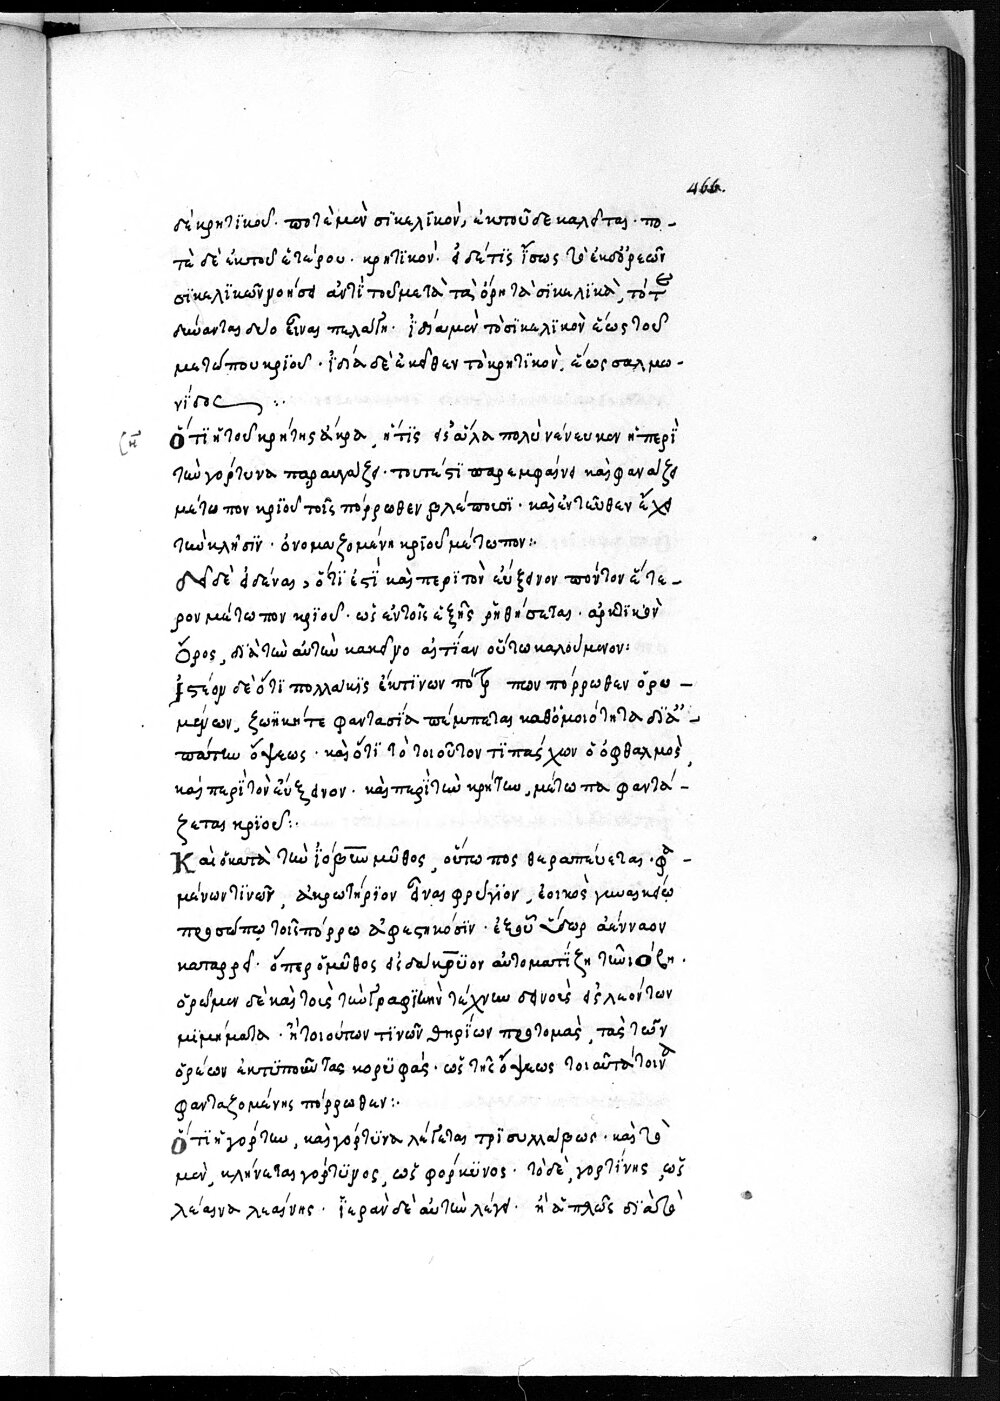 466.
δὲ κρητικοῦ. ποτὲ μὲν σικελικὸν, ἐκ τοῦδε καλεῖται. πο-
τὲ δὲ ἐκ τοῦ ἑτέρου. κρητικόν. εἰ δέ τις ἴσως τὸ ἐκ δύρεῶν
σικελικῶν νοήσει ἀντὶ τοῦ μετὰ τὰ ὄρη τὰ σικελικὰ,
δύο εἶναι πελάγη. ἰδίᾳ μὲν τὸ σικελικὸν ἕως τοῦ
μετώπου κριοῦ. ἰδίᾳ δὲ ἐκεῖθεν τὸ κρητικὸν, ἕως σαλμω-
νίδος :
Ὅτι ἡ τοῦ κρήτης ἄκρα, ἥτις εἰς ἅλα πολὺ νένευκεν ἡ περὶ
τὴν γόρτυνα παραυγάζει. τουτέστι παρεμφαίνει καὶ φαντάζει
μέτωπον κριοῦ τοῖς πόρρωθεν βλέπουσι. καὶ ἐντεῦθεν ἔχει
τὴν κλῆσιν. ὀνομαζομένη κριοῦ μέτωπον :
δεῖ δὲ εἰδέναι, ὅτι ἐστὶ καὶ περὶ τὸν εὔξεινον πόντον ἕτε-
ρον μέτωπον κριοῦ. ὡς ἐν τοῖς ἑξῆς ῥηθήσεται. ἀρκτικὸν
ὄρος, διὰ τὴν αὐτὴν κἀκεῖνο αἰτίαν οὕτω καλούμενον :
Ἰστέον δὲ ὅτι πολλάκις ἐκ τινων τόπων πόρρωθεν ὁρω-
μένων, ζωϊκή τε φαντασία πέμπεται καθ' ὁμοιότητα διὰ
πάντων ὄψεως. καὶ ὅτι τὸ τοιοῦτόν τι πάσχων ὁ ὀφθαλμὸς,
καὶ περὶ τὸν εὔξεινον. καὶ περὶ τὴν κρήτην, μέτωπα φαντά-
ζεται κριοῦ :
Καὶ ὁ κατὰ τὴν μῦθος, οὕτω πως θεραπεύεται.
μένων τινῶν, ἀκρωτήριον εἶναι φρύγιον, ἐοικὸς γυναικείῳ
προσώπῳ τοῖς πόρρω ἀφεστηκόσιν. ἐξ οὗ ὕδωρ ἀένναον
καταρρεῖ. ὅπερ ὁ μῦθος εἰς δάκρυον αὐτοματίζει τῇ νιόβῃ.
ὁρῶμεν δὲ καὶ τοὺς τὴν γραφικὴν τέχνην δεινοὺς εἰς λεόντων
μιμήματα. ἢ τοιούτων τινῶν θηρίων προτομὰς, τὰς τῶν
ὀρέων ἐκτυποῦντας κορυφάς. ὡς τῆς ὄψεως τοιαῦτά τινα
φανταζομένης πόρρωθεν :
Ὅτι ἡ γόρτυν, καὶ γόρτυνα λέγεται τρισυλλάβως. καὶ τὸ
μὲν, κλίνεται γόρτυνος, ὡς φόρκυνος. τὸ δὲ, γορτύνης, ὡς
λέαινα λεαίνης. ἱερὰν δὲ αὐτὴν λέγει. ἢ ἁπλῶς διὰ τὸ